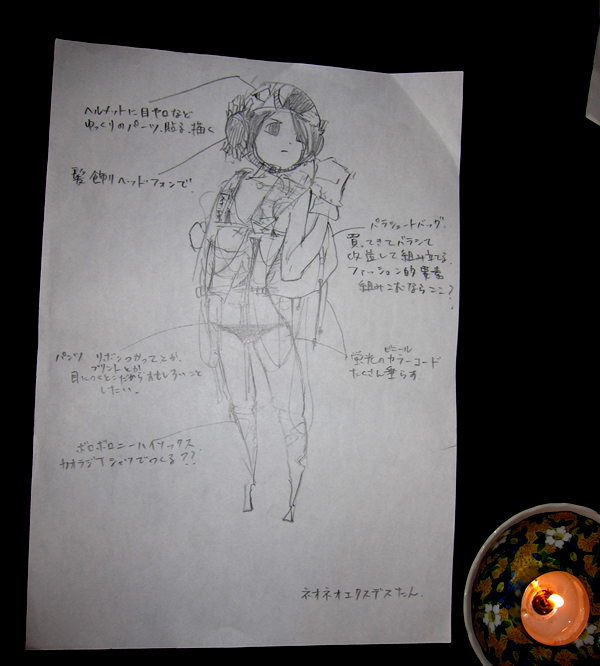 ヘルメットに目やロなど
ゆっくりのパーツ、貼る、描く
髪飾りヘッドフォンで。
パラシュートバッグ。
買ってきてバラシて
改造して組み立てる。
ファッション的要素
組みこむならここ?
パンツ リボンつかってとか、
プリントとか
目につくとこだから おもしろいこと
したい。
ビニール
蛍光のカラーコード
たくさん垂らす
ボロボロニーハイソックス
カオラジTシャツでつくる??
ネオネオエクスデスたん